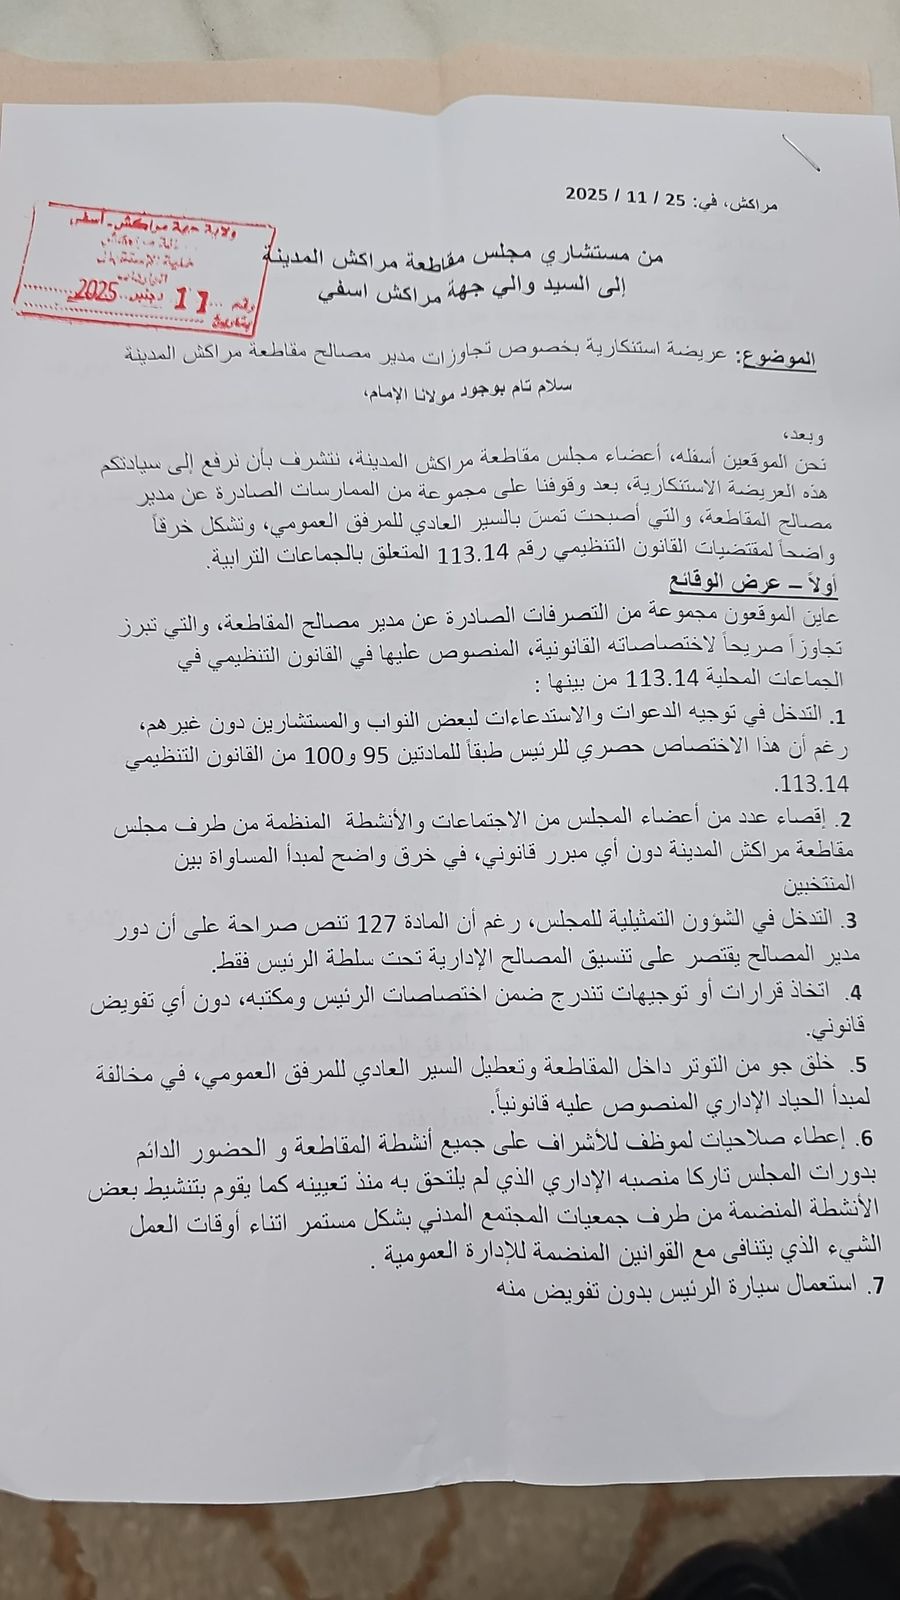 مراكش، في: 25 / 11 / 2025
ولاية جهة مراكش - اسفي
رقم
11 دجنبر 2025
بتاريخ
من مستشاري مجلس مقاطعة مراكش المدينة
إلى السيد والي جهة مراكش اسفي
الموضوع: عريضة استنكارية بخصوص تجاوزات مدير مصالح مقاطعة مراكش المدينة
سلام تام بوجود مولانا الإمام،
وبعد،
نحن الموقعين أسفله، أعضاء مجلس مقاطعة مراكش المدينة، نتشرف بأن نرفع إلى سيادتكم
هذه العريضة الاستنكارية، بعد وقوفنا على مجموعة من الممارسات الصادرة عن مدير
مصالح المقاطعة، والتي أصبحت تمسّ بالسير العادي للمرفق العمومي، وتشكل خرقاً
واضحاً لمقتضيات القانون التنظيمي رقم 113.14 المتعلق بالجماعات الترابية.
أولاً – عرض الوقائع
عاين الموقعون مجموعة من التصرفات الصادرة عن مدير مصالح المقاطعة، والتي تبرز
تجاوزاً صريحاً لاختصاصاته القانونية، المنصوص عليها في القانون التنظيمي في
الجماعات المحلية 113.14 من بينها :
1. التدخل في توجيه الدعوات والاستدعاءات لبعض النواب والمستشارين دون غيرهم،
رغم أن هذا الاختصاص حصري للرئيس طبقاً للمادتين 95 و100 من القانون التنظيمي
113.14.
2. إقصاء عدد من أعضاء المجلس من الاجتماعات والأنشطة المنظمة من طرف مجلس
مقاطعة مراكش المدينة دون أي مبرر قانوني، في خرق واضح لمبدأ المساواة بين
المنتخبين
3. التدخل في الشؤون التمثيلية للمجلس، رغم أن المادة 127 تنص صراحة على أن دور
مدير المصالح يقتصر على تنسيق المصالح الإدارية تحت سلطة الرئيس فقط.
4. اتخاذ قرارات أو توجيهات تندرج ضمن اختصاصات الرئيس ومكتبه، دون أي تفويض
قانوني.
5. خلق جو من التوتر داخل المقاطعة وتعطيل السير العادي للمرفق العمومي، في مخالفة
لمبدأ الحياد الإداري المنصوص عليه قانونياً.
6. إعطاء صلاحيات لموظف للأشراف على جميع أنشطة المقاطعة و الحضور الدائم
بدورات المجلس تاركا منصبه الإداري الذي لم يلتحق به منذ تعيينه كما يقوم بتنشيط بعض
الأنشطة المنضمة من طرف جمعيات المجتمع المدني بشكل مستمر اثناء أوقات العمل
الشيء الذي يتنافى مع القوانين المنضمة للإدارة العمومية .
7. استعمال سيارة الرئيس بدون تفويض منه